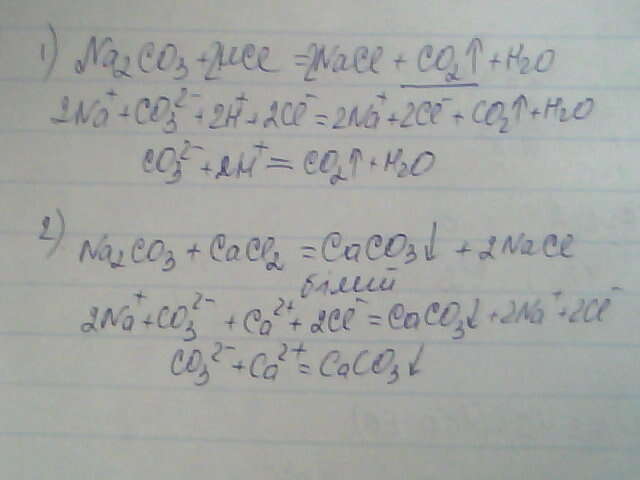 1) Na₂CO₃ + 2HCl = 2NaCl + CO₂↑ + H₂O
2Na⁺ + CO₃²⁻ + 2H⁺ + 2Cl⁻ = 2Na⁺ + 2Cl⁻ + CO₂↑ + H₂O
CO₃²⁻ + 2H⁺ = CO₂↑ + H₂O
2) Na₂CO₃ + CaCl₂ = CaCO₃↓ + 2NaCl
білий
2Na⁺ + CO₃²⁻ + Ca²⁺ + 2Cl⁻ = CaCO₃↓ + 2Na⁺ + 2Cl⁻
CO₃²⁻ + Ca²⁺ = CaCO₃↓